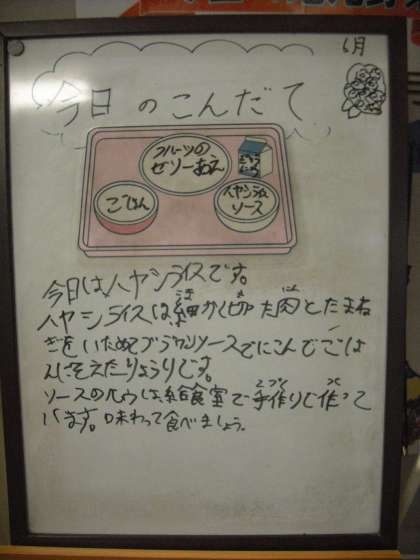 6月
今日のこんだて
フルーツの
ゼリーあえ
ぎゅう
にゅう
ごはん
ハヤシライス
ソース
今日はハヤシライスです。
ハヤシライスは細かく切った肉とたまね
ぎをいためてブラウンソースでにこんでごは
んにそえたりょうりです。
ソースのルウは給食室で手作りで作って
います。味わって食べましょう。